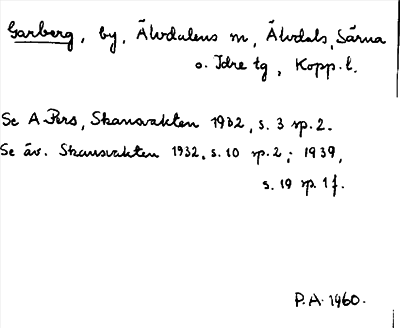 Garberg, by, Älvdalens m, Älvdals, Särna
o. Idre tg, Kopp. l.
Se A Pers, Skansvakten 1932, s. 3 sp. 2.
Se äv. Skansvakten 1932, s. 10 sp. 2; 1939,
s. 19 sp. 1 f.
P. A. 1960.